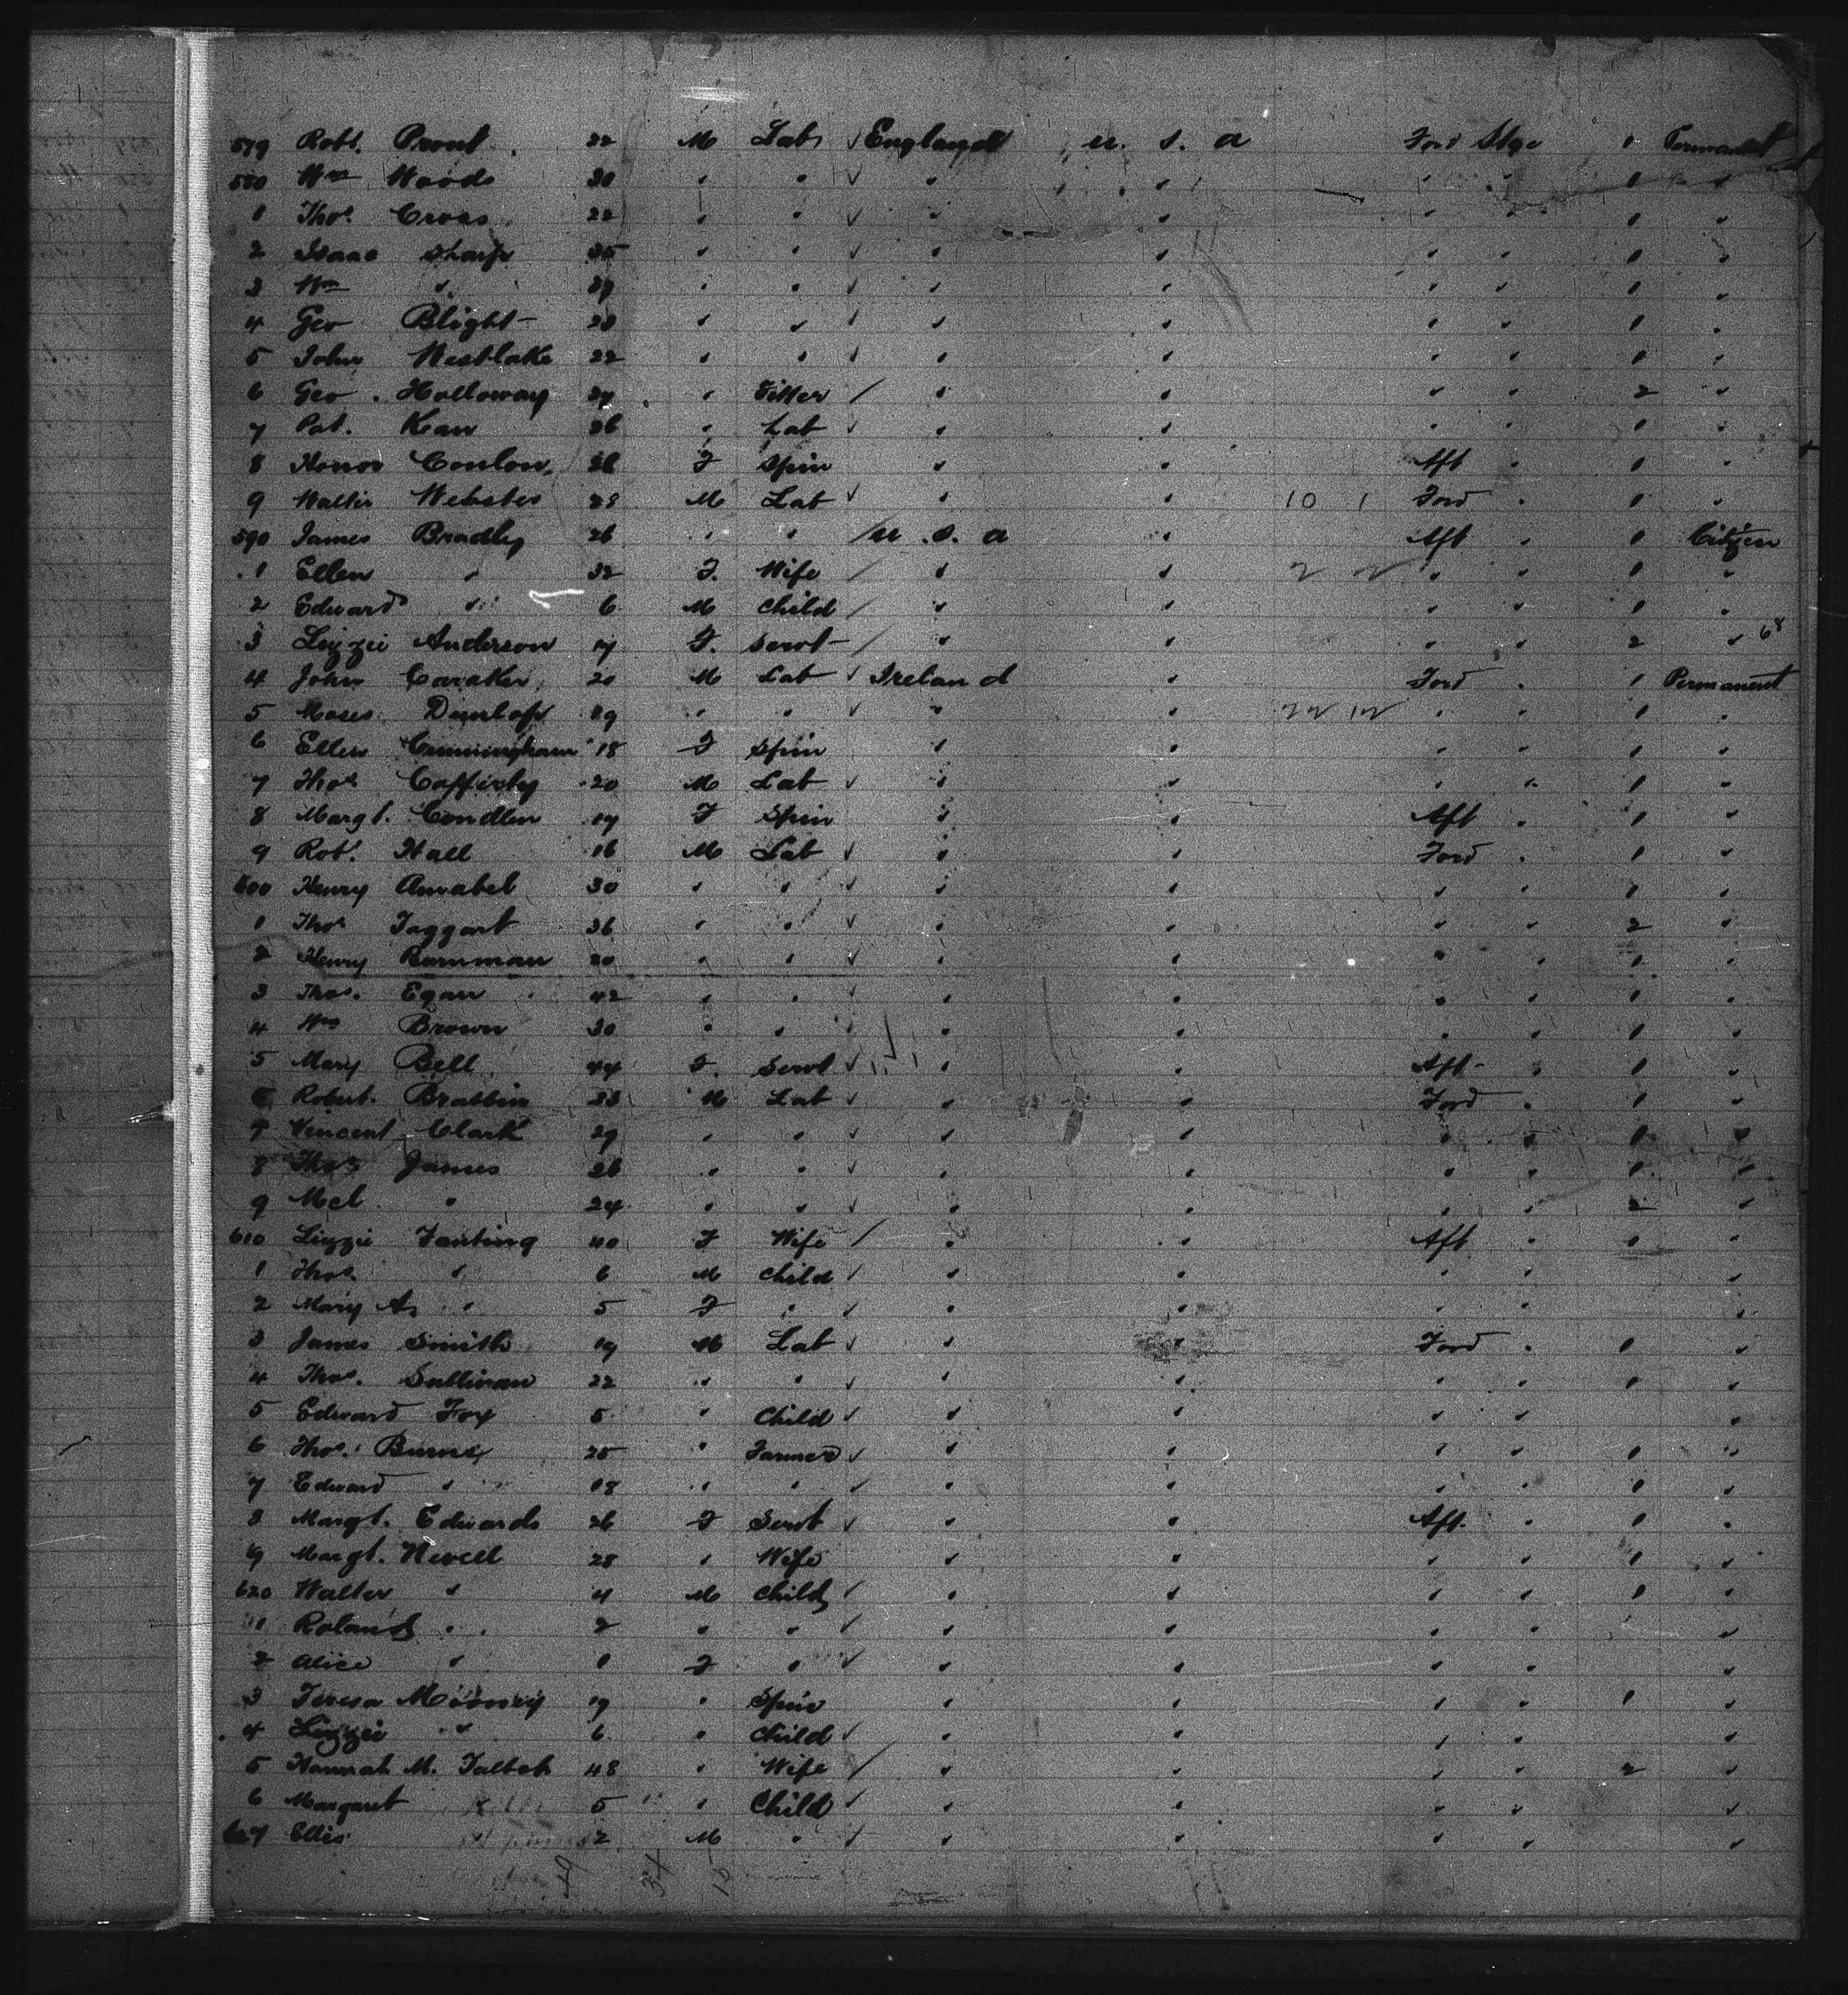 579 Robt. Pront 22 M Lab ✓ England u. s. a Ford Stge 1 Permanent
580 Wm Woods 30 " " ✓ " " " " 1 "
1 Thos. Cross 22 " " ✓ " " " " 1 "
2 Isaac Sharp 35 " " ✓ " " " " 1 "
3 Wm " " " ✓ " " " " 1 "
4 Geo Blight " " ✓ " " " " 1 "
5 John Westlake 22 " " ✓ " " " " 1 "
6 Geo. Holloway " Fitter / " " " " 2 "
7 Pat. Kean 36 " Lab ✓ " " " " 1 "
8 Honor Conlon F Spin " " Aft " 1 "
9 Walter Webster 28 M Lab ✓ " " 10 1 Ford " 1 "
590 James Bradley 26 " " / u. s. a " Aft " 1 Citizen
1 Ellen " 32 F. Wife / " " 2 2 " " 1 "
2 Edward " 6 M Child / " " " " 1 "
3 Lizzie Anderson 17 F. Servt / " " " " 2 " 68
4 John 20 M Lab ✓ Ireland " Ford " 1 Permanent
5 Moses Dunlop 19 " " ✓ " " 22 12 " " 1 "
6 Ellen Cunningham 18 F Spin " " " " 1 "
7 Thos Cafferty 20 M Lab ✓ " " " " 1 "
8 Margt. Condlen 17 F Spin " " Aft " 1 "
9 Robt. Hall 16 M Lab ✓ " " Ford " 1 "
600 Henry Annabel 30 " " ✓ " " " " 1 "
1 Thos Taggart 36 " " ✓ " " " " 2 "
2 Henry Burnman 20 " " ✓ " " " " 1 "
3 Thos. Egan 42 " " ✓ " " " " 1 "
4 Wm Brown 30 " " " " " " 1 "
5 Mary Bell 44 F. Servt ✓ " " Aft " 1 "
6 Robert. Brattin M Lab ✓ " " Ford " 1 "
7 Vincent Clark 29 " " ✓ " " " " 1 "
8 Thos James 26 " " ✓ " " " " 1 "
9 Mcl " 24 " " ✓ " " " " 2 "
610 Lizzie Fanting 40 F Wife / " " Aft " 1 "
1 Thos. " 6 M Child ✓ " " " " "
2 Mary A. " 5 F " ✓ " " " " "
3 James Smith 19 M Lab ✓ " " Ford " 1 "
4 Thos. Sullivan 22 " " ✓ " " " " 1 "
5 Edward Fox 5 " Child ✓ " " " " "
6 Thos. Burns 25 " Farmer ✓ " " " " 1 "
7 Edward " 18 " " ✓ " " " " 1 "
8 Margt. Edwards 26 F Servt ✓ " " Aft. " 1 "
9 Margt. Nevell 28 " Wife " " " " 1 "
620 Walter " 4 M Child ✓ " " " " 1 "
1 Roland " 2 " " ✓ " " " " "
2 Alice " 1 F " ✓ " " " " "
3 Teresa Mooney 19 " Spin " " " " 1 "
4 Lizzie " 6 " Child ✓ " " " " "
5 Hannah M. 48 " Wife / " " " " 2 "
6 Margaret 5 " Child ✓ " " " " "
627 Ellis 2 M " ✓ " " " " "
49 34 15